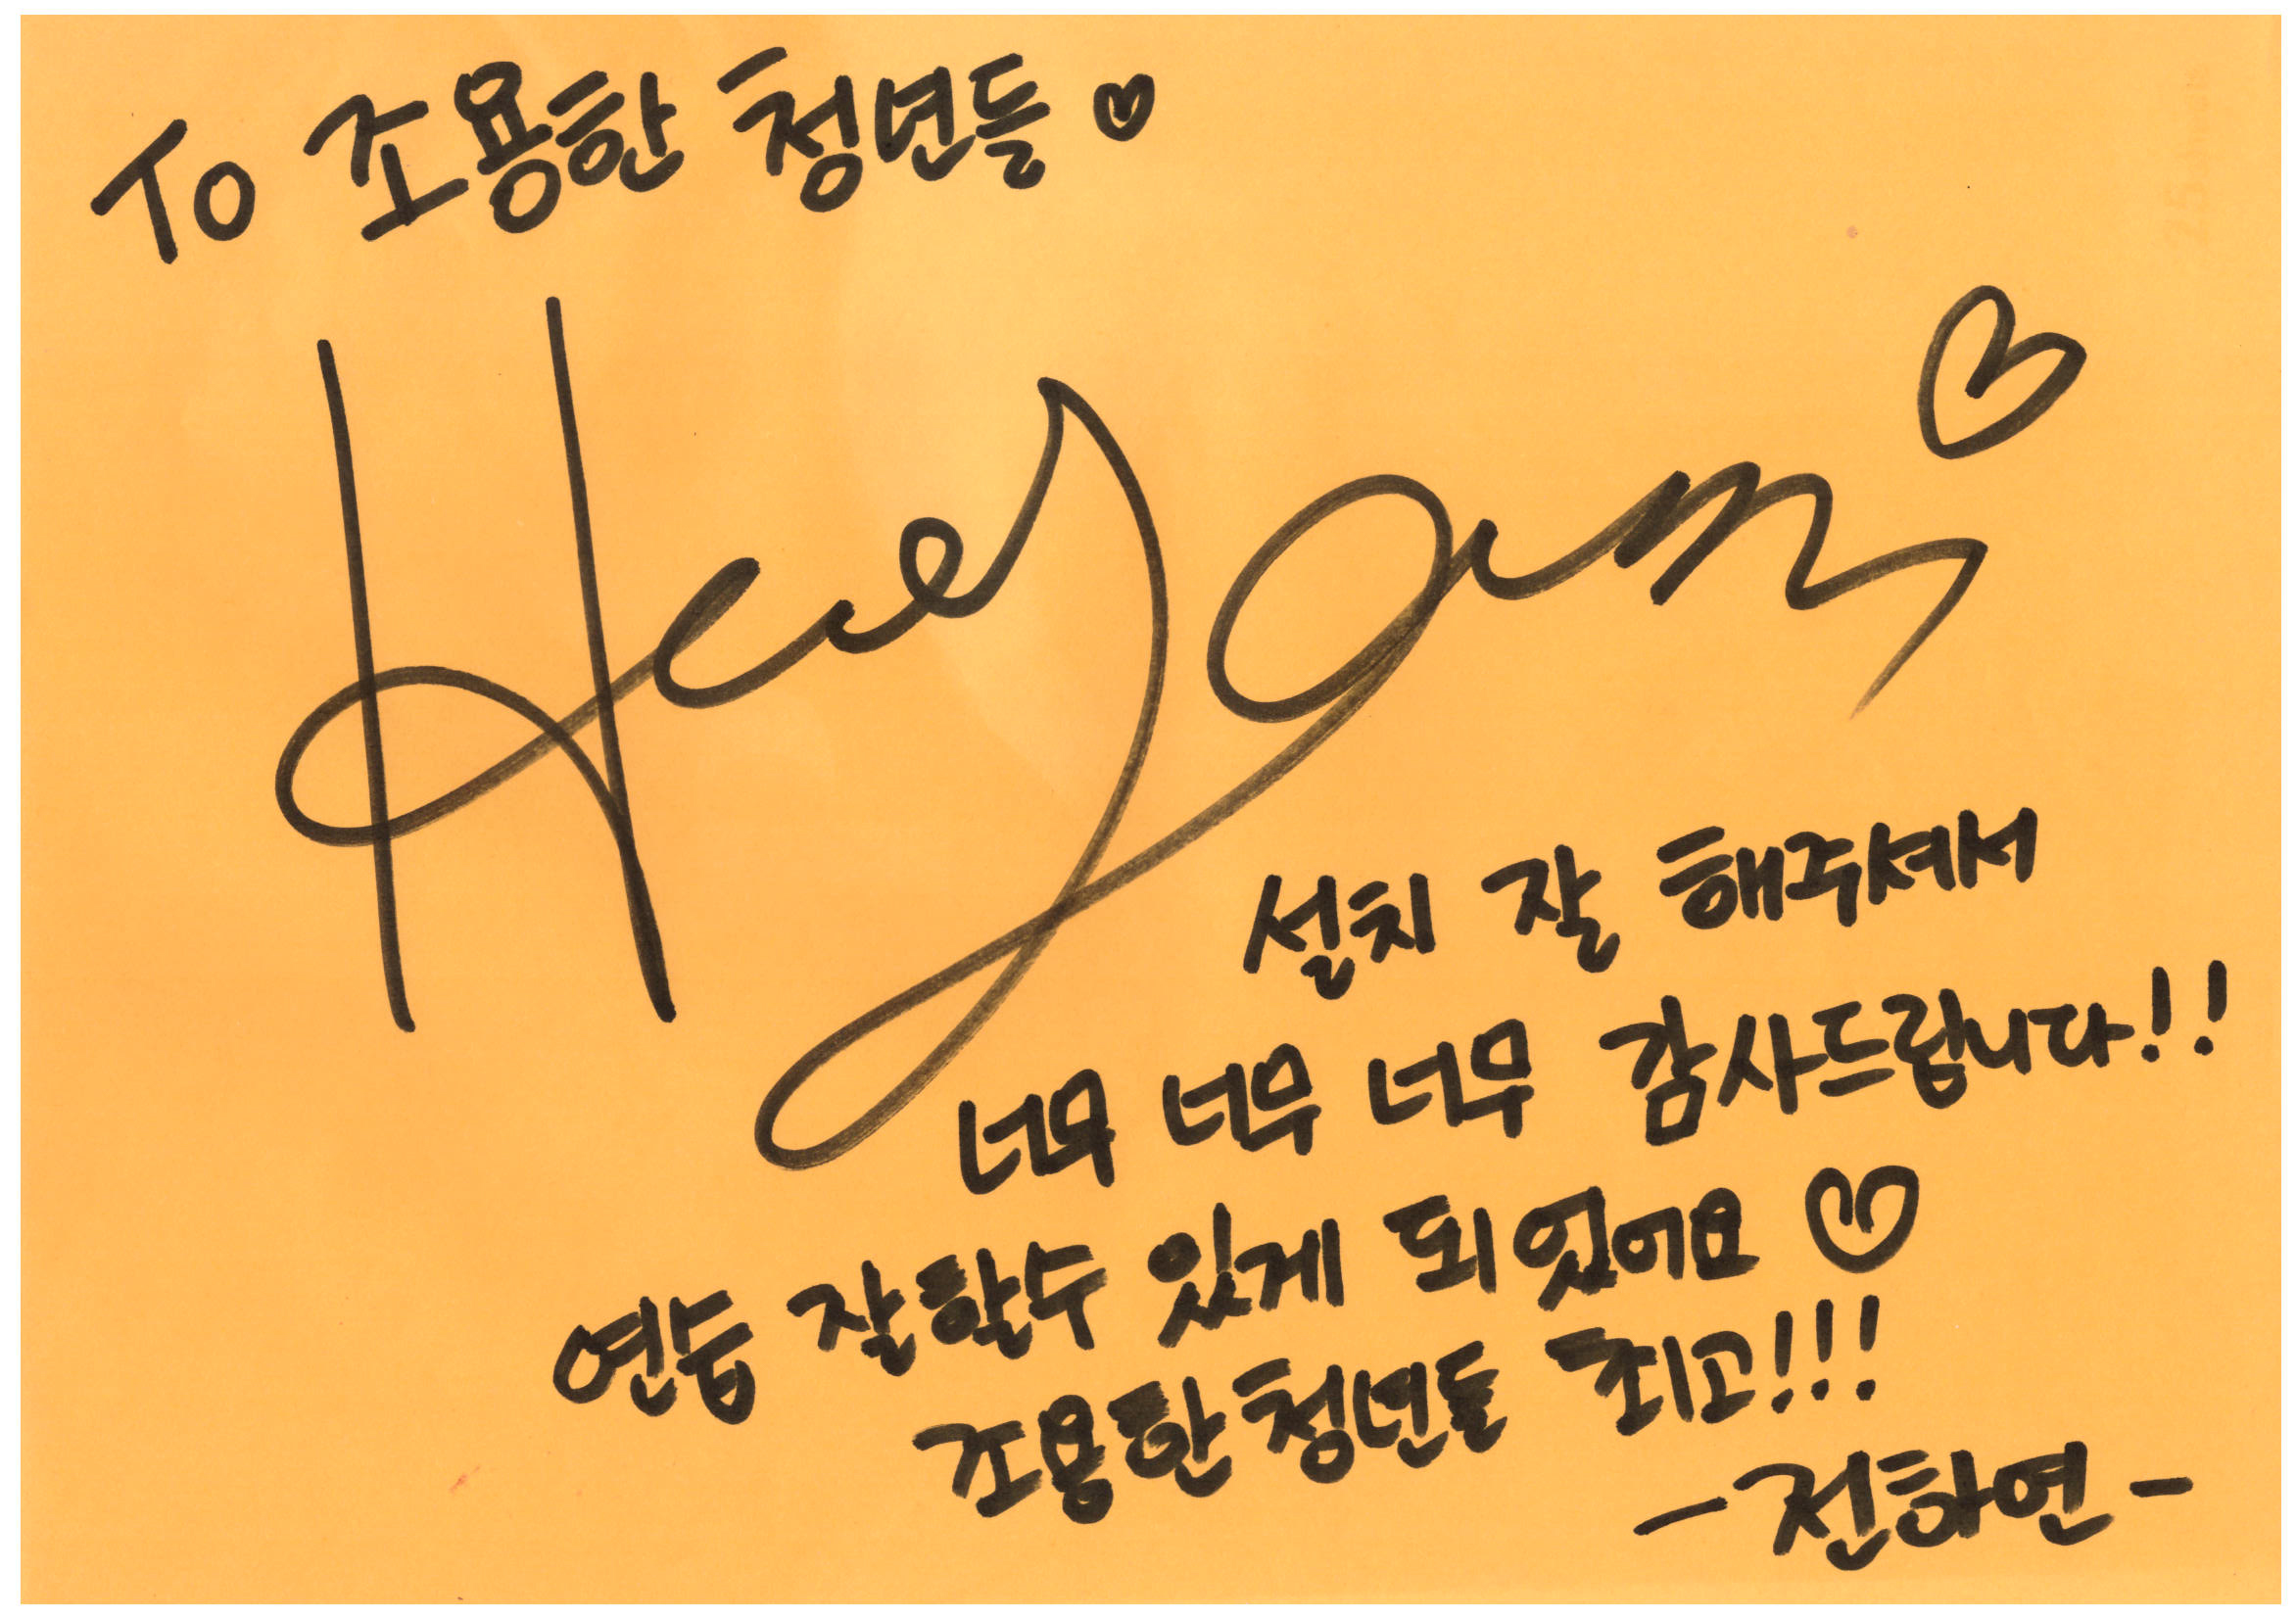 To 조용한 청년들♡
설치 잘 해주셔서
너무 너무 너무 감사드립니다!!
연습 잘할수 있게 되었어요♡
조용한청년들 최고!!!
-전하연-